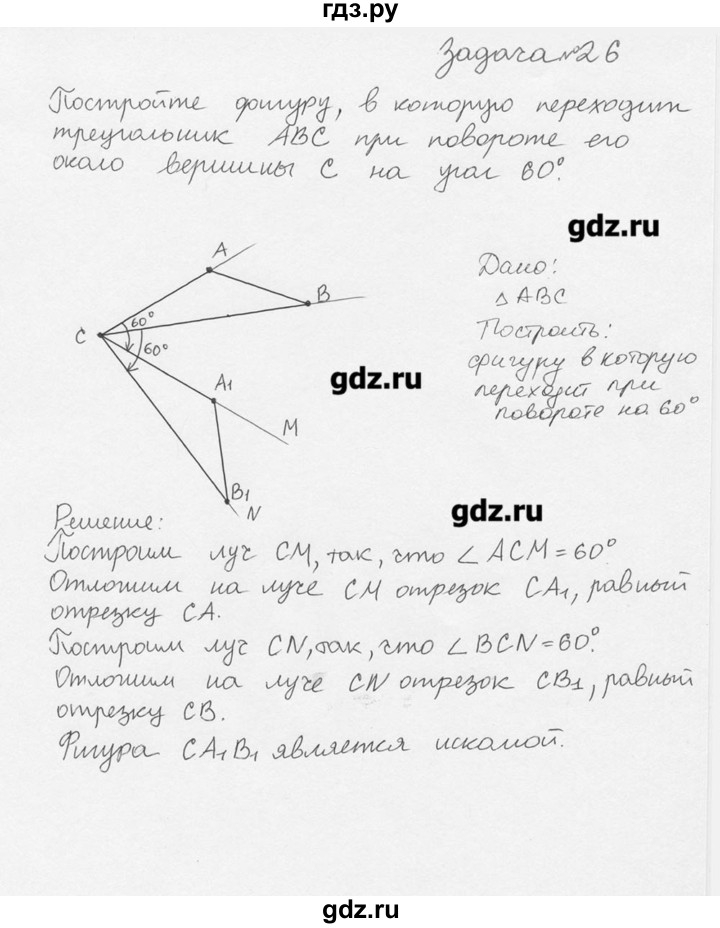 гдз.ру
Задача №26
Постройте фигуру, в которую переходит
треугольник ABC при повороте его
около вершины C на угол 60°.
gdz.ru
A
B
C
60°
60°
A₁
M
B₁
N
Дано:
△ABC
Построить:
фигуру в которую
переходит при
повороте на 60°
gdz.ru
gdz.ru
Решение:
Построим луч CM, так, что ∠ACM = 60°
Отложим на луче CM отрезок CA₁, равный
отрезку CA.
Построим луч CN, так, что ∠BCN = 60°.
Отложим на луче CN отрезок CB₁, равный
отрезку CB.
Фигура CA₁B₁ является искомой.
gdz.ru